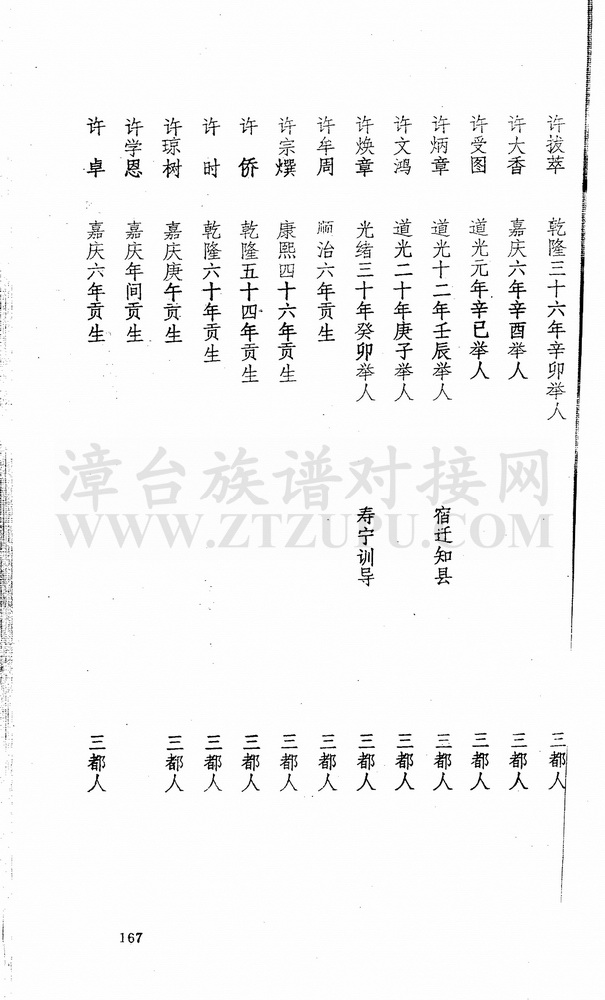 许拔萃 乾隆三十六年辛卯举人 三都人
许大香 嘉庆六年辛酉举人 三都人
许受图 道光元年辛巳举人 三都人
许炳章 道光十二年壬辰举人 宿迁知县 三都人
许文鸿 道光二十年庚子举人 三都人
许焕章 光绪三十年癸卯举人 寿宁训导 三都人
许牟周 顺治六年贡生 三都人
许宗熼 康熙四十六年贡生 三都人
许侨 乾隆五十四年贡生 三都人
许时 乾隆六十年贡生 三都人
许琼树 嘉庆庚午贡生 三都人
许学恩 嘉庆年间贡生
许卓 嘉庆六年贡生 三都人
漳台族谱对接网
WWW.ZTZUPU.COM
167